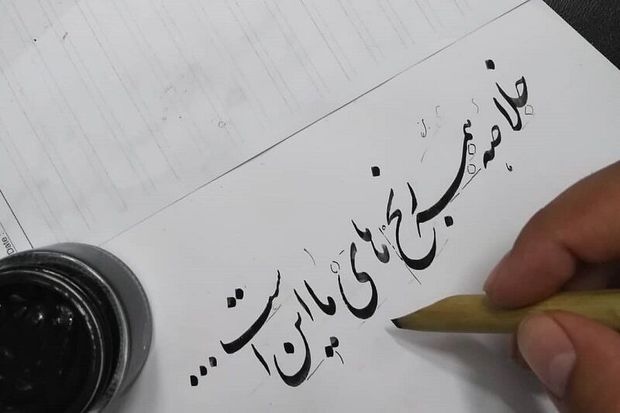 خلاصهٔ همه رنج‌های ما این است...
Date: